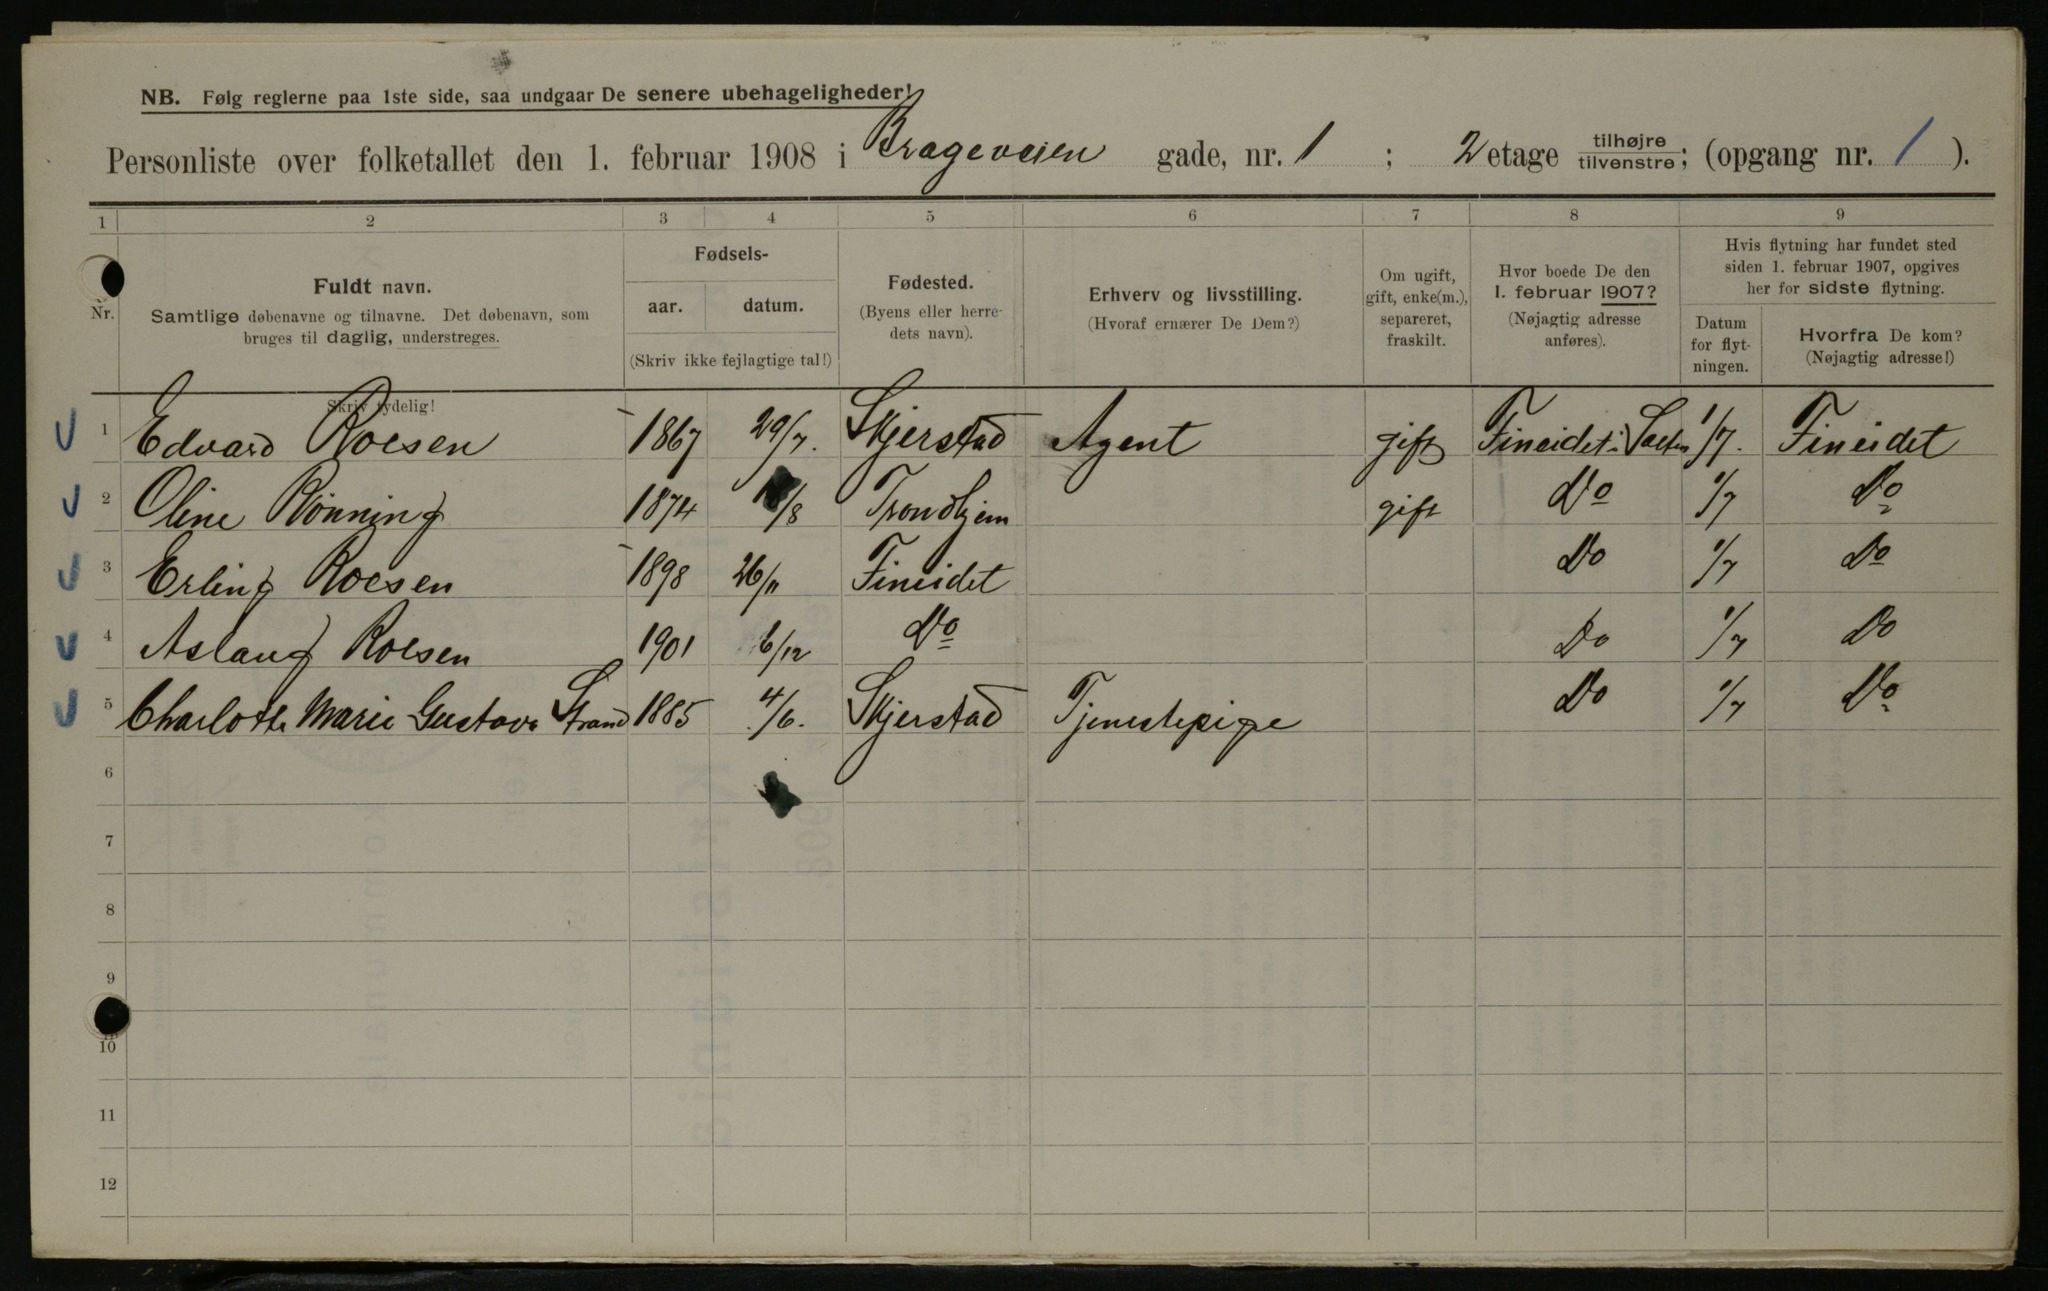 NB. Følg reglerne paa 1ste side, saa undgaar De senere ubehageligheder!
Personliste over folketallet den 1. februar 1908 i Brageveien gade, nr. 1 ; 2 etage tilhøjre tilvenstre; (opgang nr. 1 ).
1 2 3 4 5 6 7 8 9
Nr.
Fuldt navn.
Samtlige døbenavne og tilnavne. Det døbenavn, som
bruges til daglig, understreges.
Fødsels-
aar. datum.
(Skriv ikke fejlagtige tal!)
Fødested.
(Byens eller herre-
dets navn).
Erhverv og livsstilling.
(Hvoraf ernærer De Dem?)
Om ugift,
gift, enke(m.),
separeret,
fraskilt.
Hvor boede De den
1. februar 1907?
(Nøjagtig adresse
anføres).
Hvis flytning har fundet sted
siden 1. februar 1907, opgives
her for sidste flytning.
Datum
for flyt-
ningen.
Hvorfra De kom?
(Nøjagtig adresse!)
Skriv tydelig!
1 Edvard Roesen 1867 29/7. Skjerstad Agent gift Fineidet i Salten 1/7. Fineidet
2 Oline Rönning 1874 /8 Trondhjem gift Do 1/7 Do
3 Erling Roesen 1898 26/11 Fineidet Do 1/7 Do
4 Aslaug Roesen 1901 6/12 Do Do 1/7 Do
5 Charlotte Marie Gustava Strand 1885 4/6. Skjerstad Tjenestepige Do 1/7 Do
6
7
8
9
10
11
12